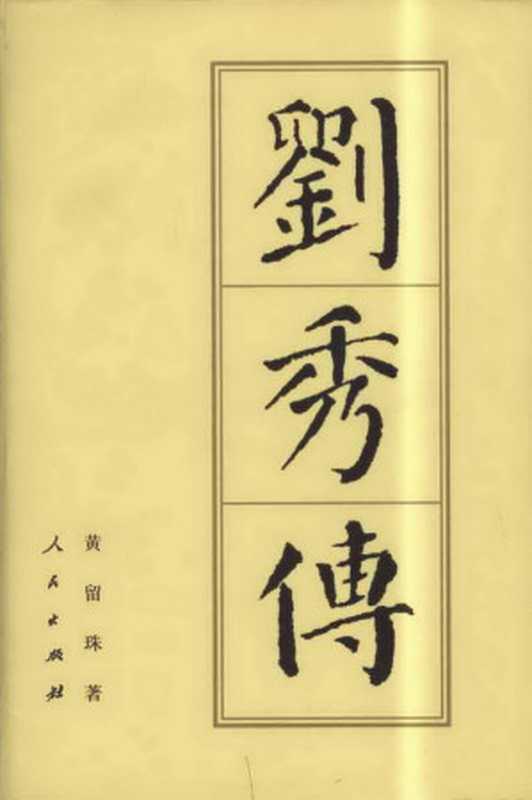 劉秀傳
黄留珠著
人民出版社